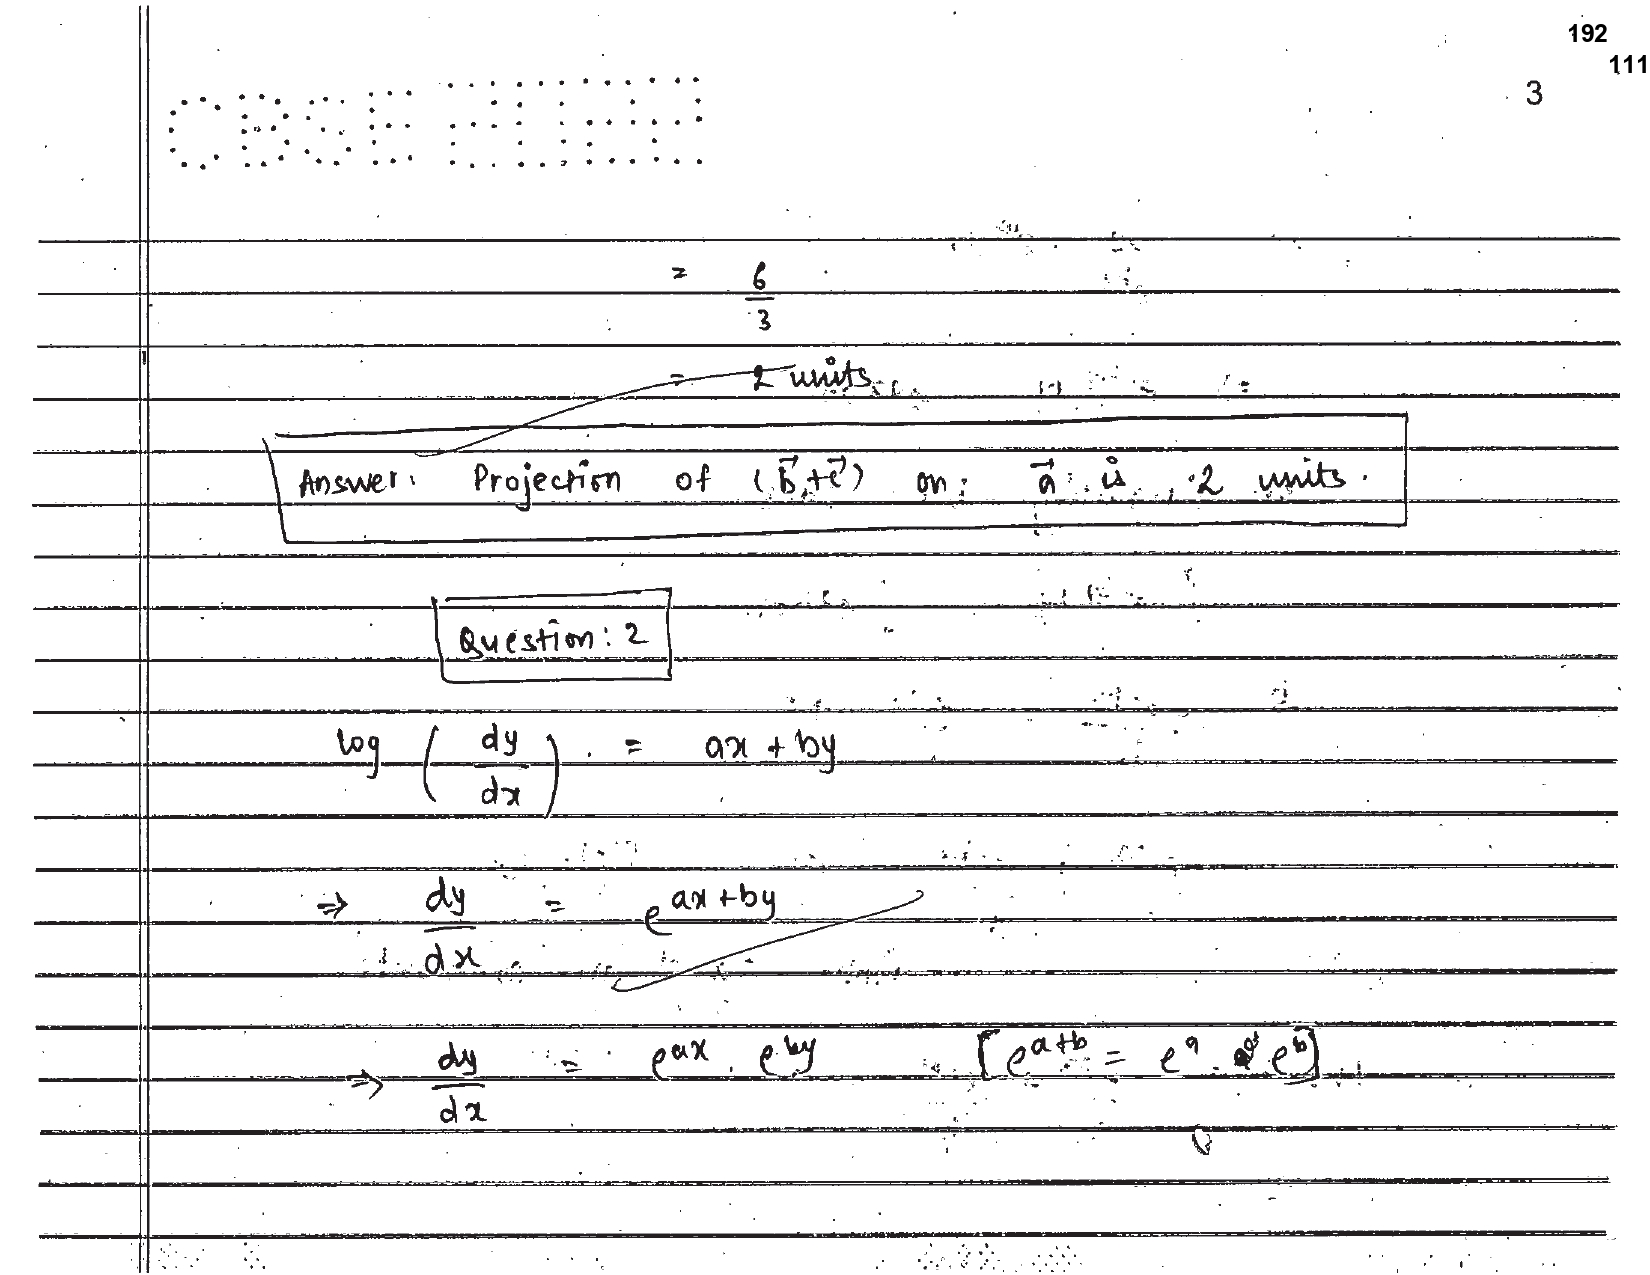 192
111
3
CBSE
= 6/3
= 2 units
Answer: Projection of (b⃗+c⃗) on a⃗ is 2 units.
Question: 2
log (dy/dx) = ax + by
⇒ dy/dx = e^(ax+by)
⇒ dy/dx = e^(ax) . e^(by) [e^(a+b) = e^a . e^b]